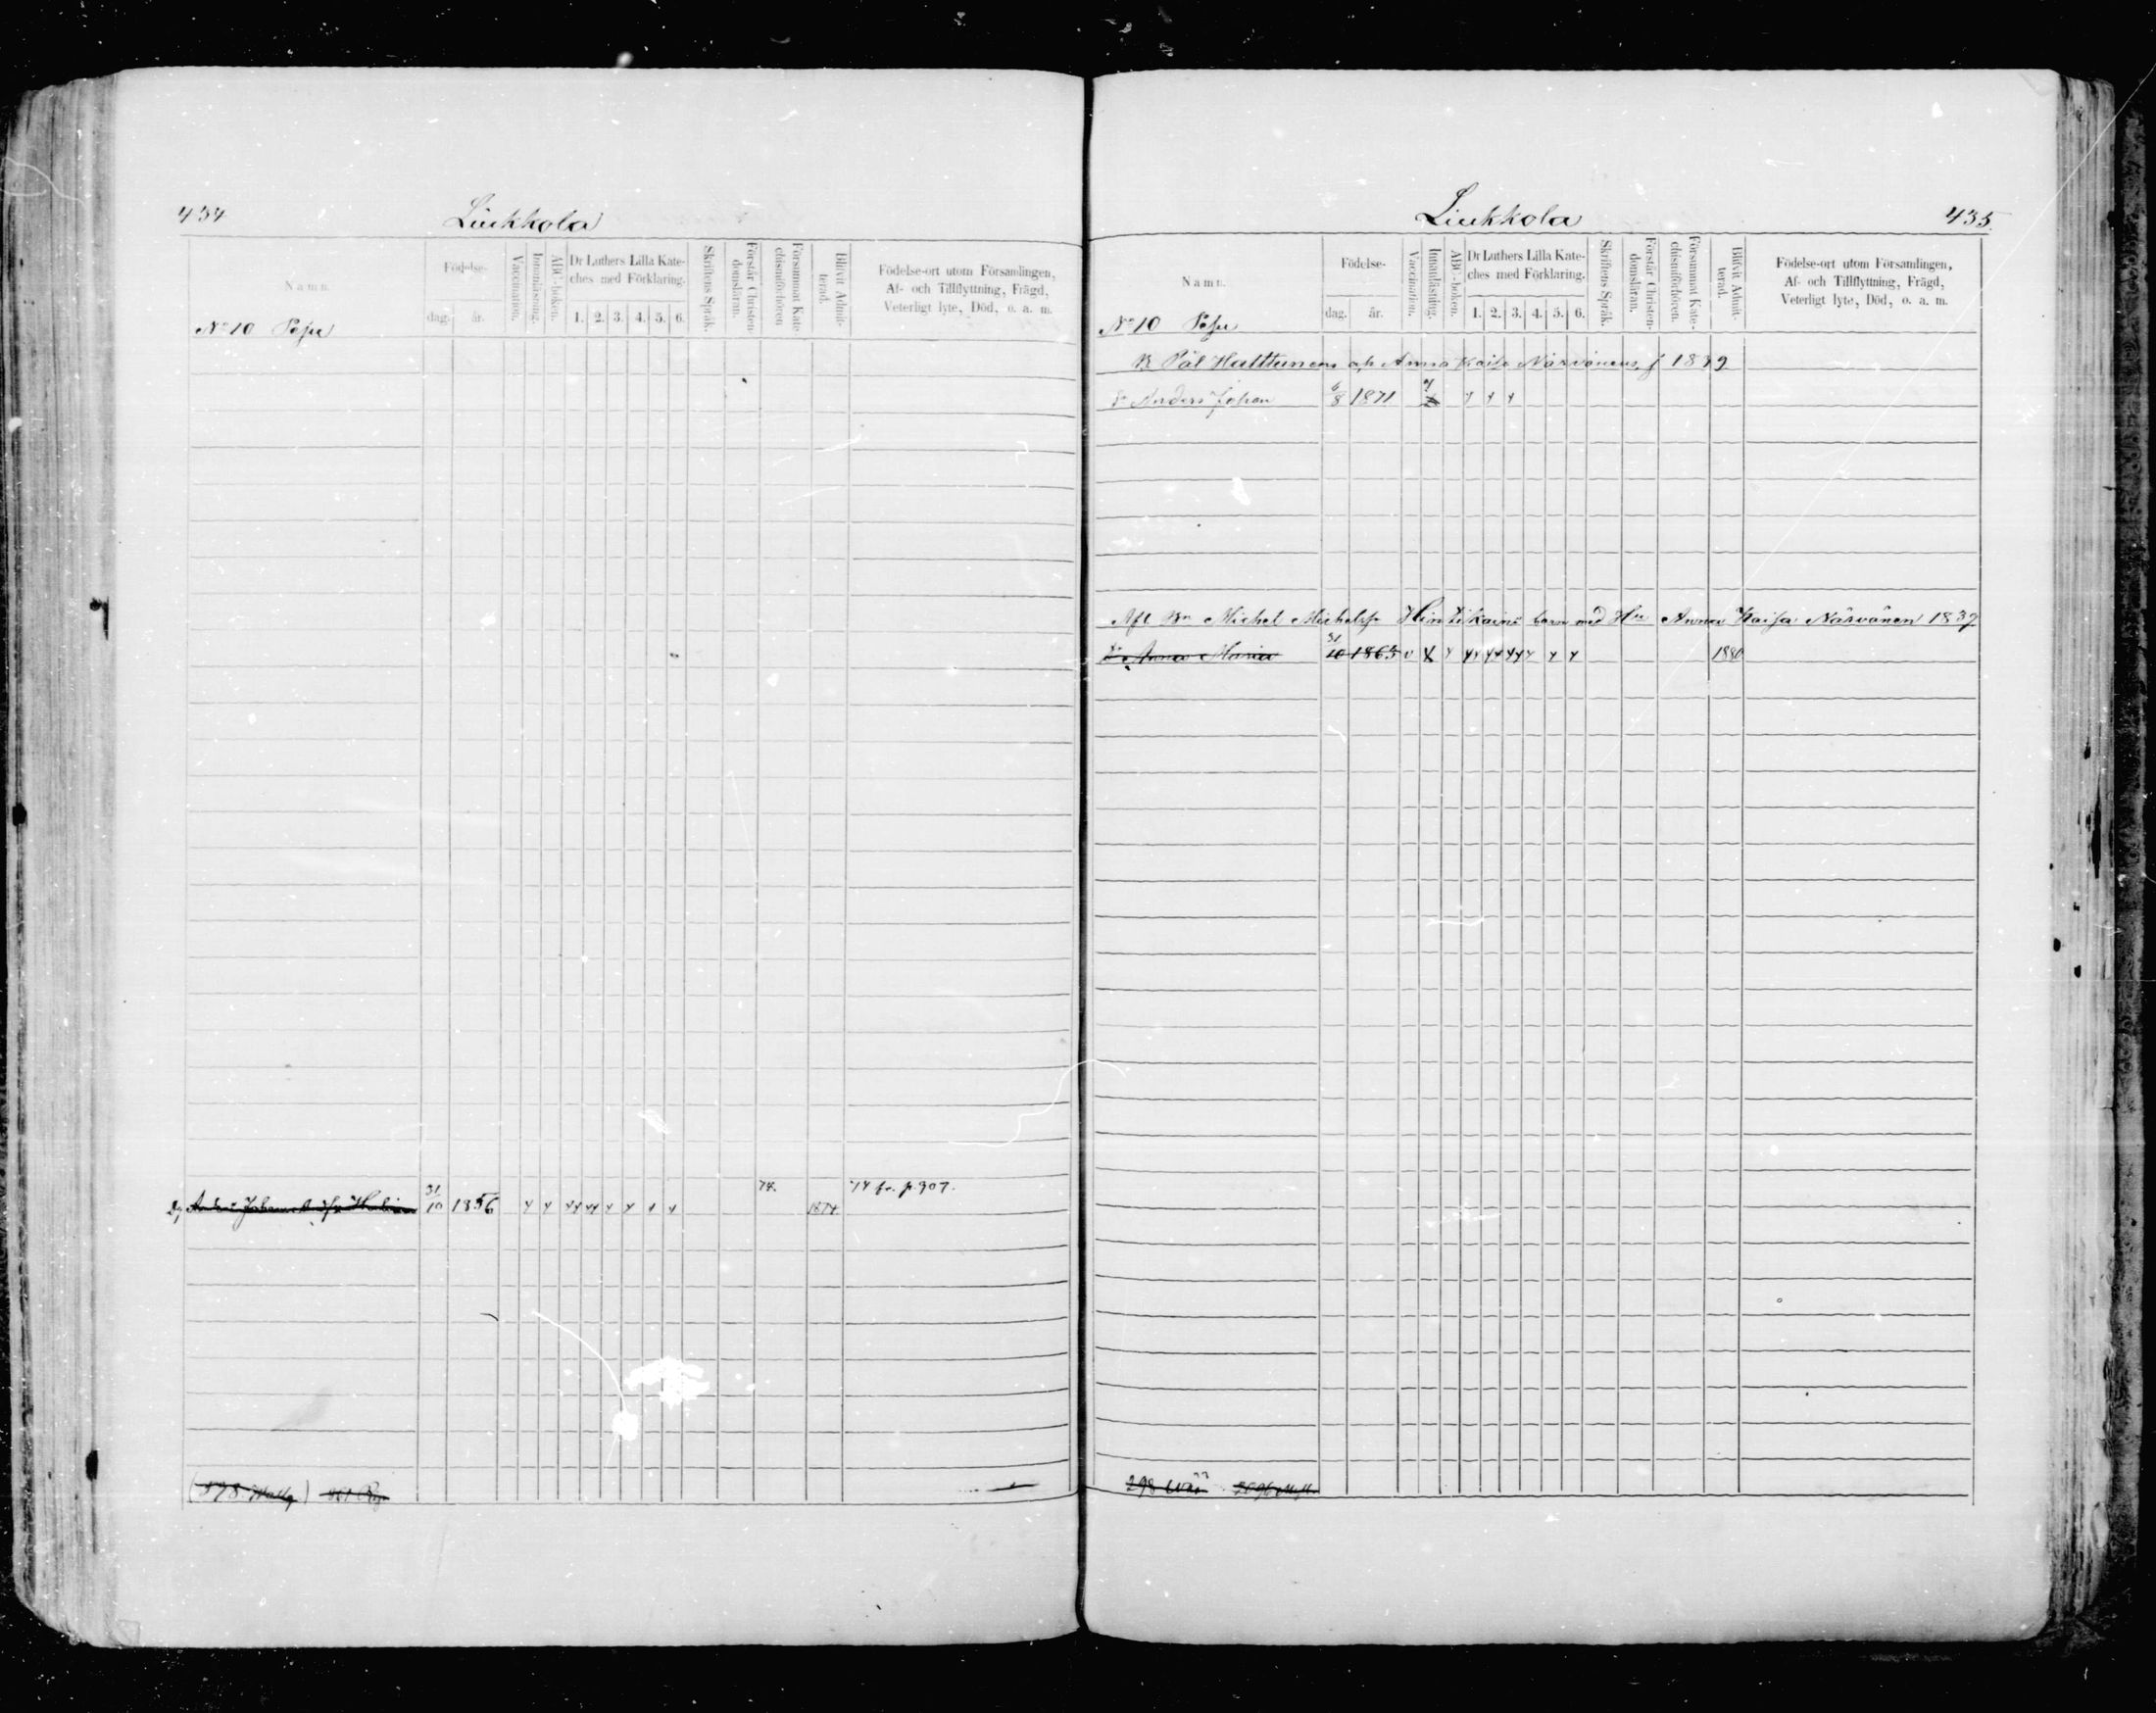 434 Liukkola
Namn. Födelse- dag. år. Vaccination. Innanläsning. ABC-boken. Dr Luthers Lilla Kateches med Förklaring. 1. 2. 3. 4. 5. 6. Skriftens Språk. Förstår Christendomsläran. Försummat Katechismiförhören Blifvit Admitterad. Födelse-ort utom Församlingen, Af- och Tillflyttning, Frägd, Veterligt lyte, Död, o. a. m.
No 10
74. 74 fr. p. 907.
31/10 1856 1874
(578 861
Liukkola 435.
Namn. Födelse- dag. år. Vaccination. Innanläsning. ABC-boken. Dr Luthers Lilla Kateches med Förklaring. 1. 2. 3. 4. 5. 6. Skriftens Språk. Förstår Christendomsläran. Försummat Katechismiförhören. Blifvit Admitterad. Födelse-ort utom Församlingen, Af- och Tillflyttning, Frägd, Veterligt lyte, Död, o. a. m.
No 10
Pål Hatttunens och Anna Kaisa Närvänens f 1839
Anders Johan 6/8 1871
Afl. Michel Michelss. Hintikains barn med Hu Anna Kaisa Närvänen 1839
Anna Maria 31/10 1863 1880
298